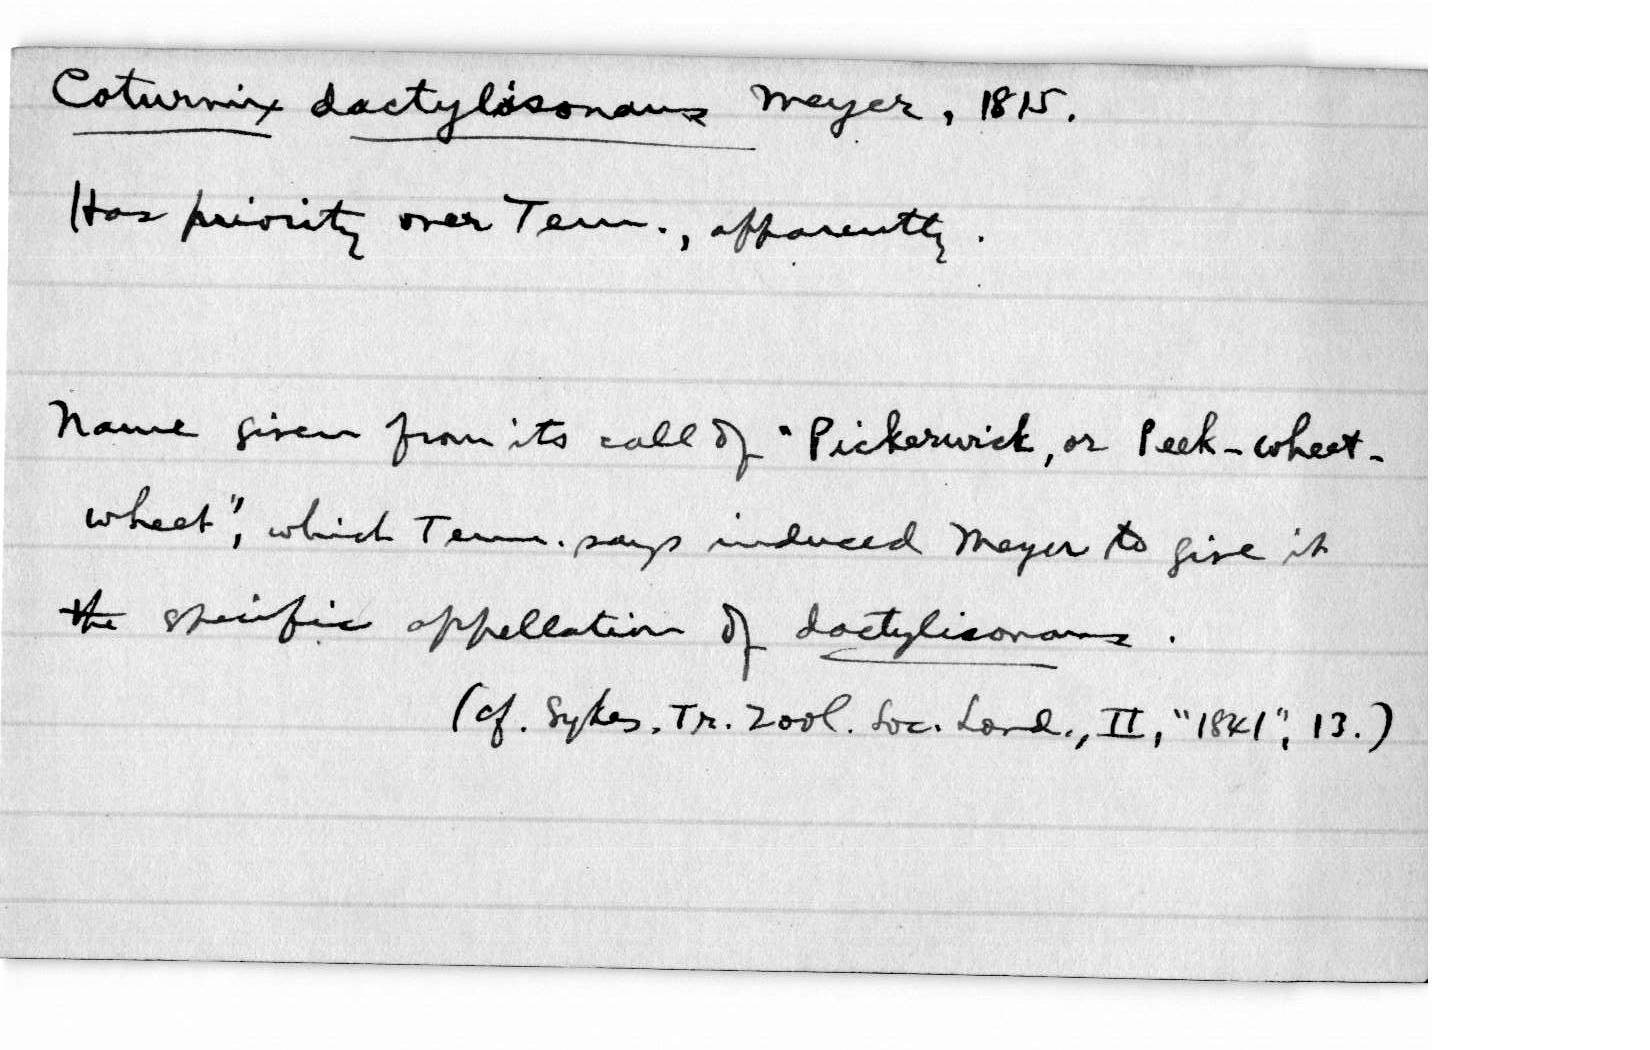 Coturnix dactylisonans Meyer, 1815.
Has priority over Tem., apparently.
Name given from its call of "Pickerwick, or Peek-wheet-
wheet", which Tem. says induced Meyer to give it
the specific appellation of dactylisonans.
(cf. Sykes, Tr. Zool. Soc. Lond., II, "1841", 13.)